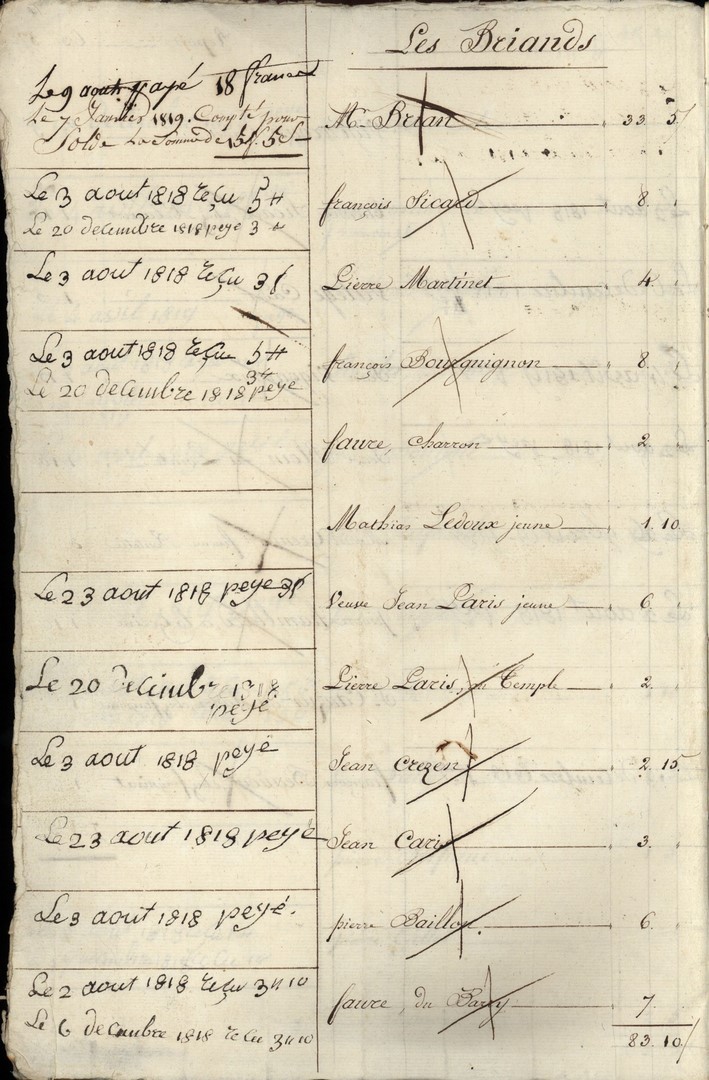 Les Briands
Le 9 aout payé 18 francs
Le 7 Janvier 1819. Compté pour
Solde La Somme de 15f. 5s
Mr. Brian 33. 5
Le 3 aout 1818 reçu 5#
Le 20 decembre 1818 peyé 3#
françois Sicard 8.
Le 3 aout 1818 reçu 3f
Pierre Martinet 4.
Le 3 aout 1818 reçu 5#
Le 20 decembre 1818 3# peyé
françois Bourguignon 8.
faure, Charron 2.
Mathias Ledoux jeune 1. 10
Le 23 aout 1818 peye 3f
Veuve Jean Paris jeune 6.
Le 20 decembre 1818
peyé
Pierre Paris, au Temple 2.
Le 3 aout 1818 peyé
Jean Crezen 2. 15
Le 23 aout 1818 peyé
Jean Caris 3.
Le 3 aout 1818 peyé.
pierre Baillou. 6.
Le 2 aout 1818 reçu 3# 10
Le 6 decembre 1818 reçu 3# 10
faure, du Barry 7.
83. 10